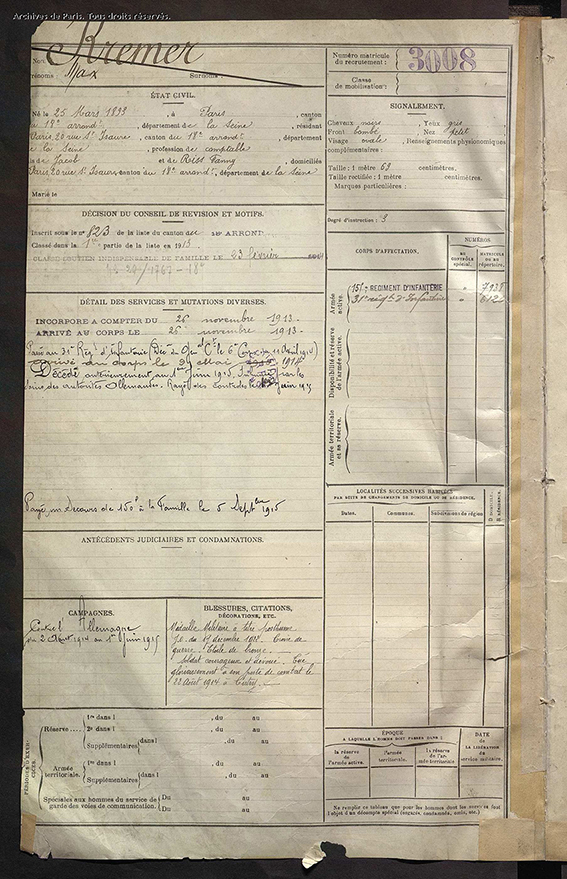 Archives de Paris. Tous droits réservés.
Kremer
Nom
Prénoms : Max Surnoms :
ÉTAT CIVIL.
Né le 25 Mars 1893, à Paris, canton
du 18e arrondt, département de la Seine, résidant
Paris, 20 rue St Isaure, canton du 18e arrondt, département
de la Seine, profession de comptable
fils de Jacob et de Fanny, domiciliés
Paris, 20 rue St Isaure canton du 18e arrondt, département de la Seine
Marié le
DÉCISION DU CONSEIL DE REVISION ET MOTIFS.
Inscrit sous le n° 823 de la liste du canton du 18e ARROND
Classé dans la 1re partie de la liste en 1913
CLASSÉ SOUTIEN INDISPENSABLE DE FAMILLE LE 23 février
DÉTAIL DES SERVICES ET MUTATIONS DIVERSES.
INCORPORÉ A COMPTER DU 26 novembre 1913.
ARRIVÉ AU CORPS LE 26 novembre 1913.
Passé au 31e Régt d'Infanterie (Déc. du Gal Ct le 6e Corps du 11 Avril 1914)
arrivé au corps le 29 Mai 1914
Décédé antérieurement au 1er juin 1915. par les
soins des autorités Allemandes. Rayé des contrôles le juin 1915
Payé un secours de 150f à la famille le 5 Septbre 1915
ANTÉCÉDENTS JUDICIAIRES ET CONDAMNATIONS.
CAMPAGNES.
Contre l'Allemagne
du 2 Août 1914 au 1er juin 1915
BLESSURES, CITATIONS,
DÉCORATIONS, ETC.
Médaille Militaire à titre posthume
J.O. du décembre Croix de
guerre. Etoile de bronze.
Soldat courageux et dévoué. Tué
glorieusement à son poste de combat le
22 Août 1914 à
PÉRIODES D'EXERCICES.
Réserve
1re dans l , du au
2e dans l , du au
Supplémentaires dans l , du au
Armée territoriale.
1re dans l , du au
Supplémentaires dans l , du au
Spéciales aux hommes du service de
garde des voies de communication.
Du au
Du au
Numéro matricule
du recrutement : 3008
Classe
de mobilisation :
SIGNALEMENT.
Cheveux noirs Yeux gris
Front bombé Nez petit
Visage ovale Renseignements physionomiques
complémentaires :
Taille : 1 mètre 63 centimètres.
Taille rectifiée : 1 mètre centimètres.
Marques particulières :
Degré d'instruction : 3
CORPS D'AFFECTATION.
NUMÉROS
AU CONTRÔLE spécial.
MATRICULE OU AU répertoire.
Armée active.
RÉGIMENT D'INFANTERIE " 7938
31e régt d'Infanterie " 612
Disponibilité et réserve de l'armée active.
Armée territoriale et sa réserve.
LOCALITÉS SUCCESSIVES HABITÉES
PAR SUITE DE CHANGEMENTS DE DOMICILE OU DE RÉSIDENCE.
Dates. Communes. Subdivisions de région
D. DOMICILE. R. RÉSIDENCE.
ÉPOQUE
A LAQUELLE L'HOMME DOIT PASSER DANS :
la réserve de l'armée active.
l'armée territoriale.
la réserve de l'armée territoriale
DATE
DE LA LIBÉRATION DU service militaire.
Ne remplir ce tableau que pour les hommes dont les services font
l'objet d'un décompte spécial (engagés, condamnés, omis, etc.)